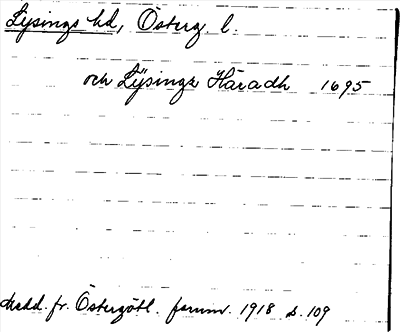 Lysings hd, Österg. l.
och Lÿsings Häradh 1695
Medd. fr. Östergötl. fornm. 1918 s. 109